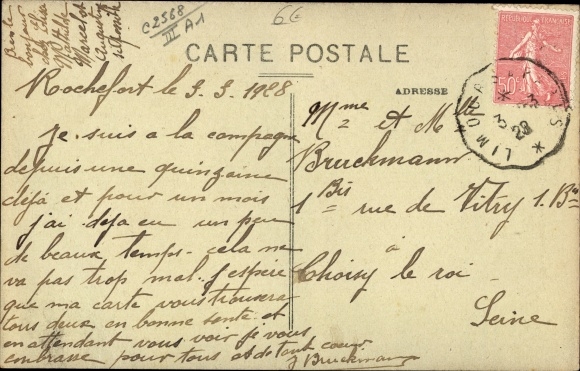 bonjour
Marcelot
Auguste
C2568
III A1
66
CARTE POSTALE
RÉPUBLIQUE FRANÇAISE
50c
LIMOURS
Rochefort le 3.3.1928
ADRESSE
Je suis a la compagne
depuis une quinzaine
déjà et pour un mois
j'ai deja eu un peu
de beaux temps. cela ne
va pas trop mal. j'espère
que ma carte vous trouvera
tous deux en bonne santé et
en attendant vous voir je vous
embrasse pour tous et de tout coeur
J Bruckmann
Mme et Mlle
Bruckmann
1 Bis rue de Vitry 1. Bis
à
Choisy le roi
Seine